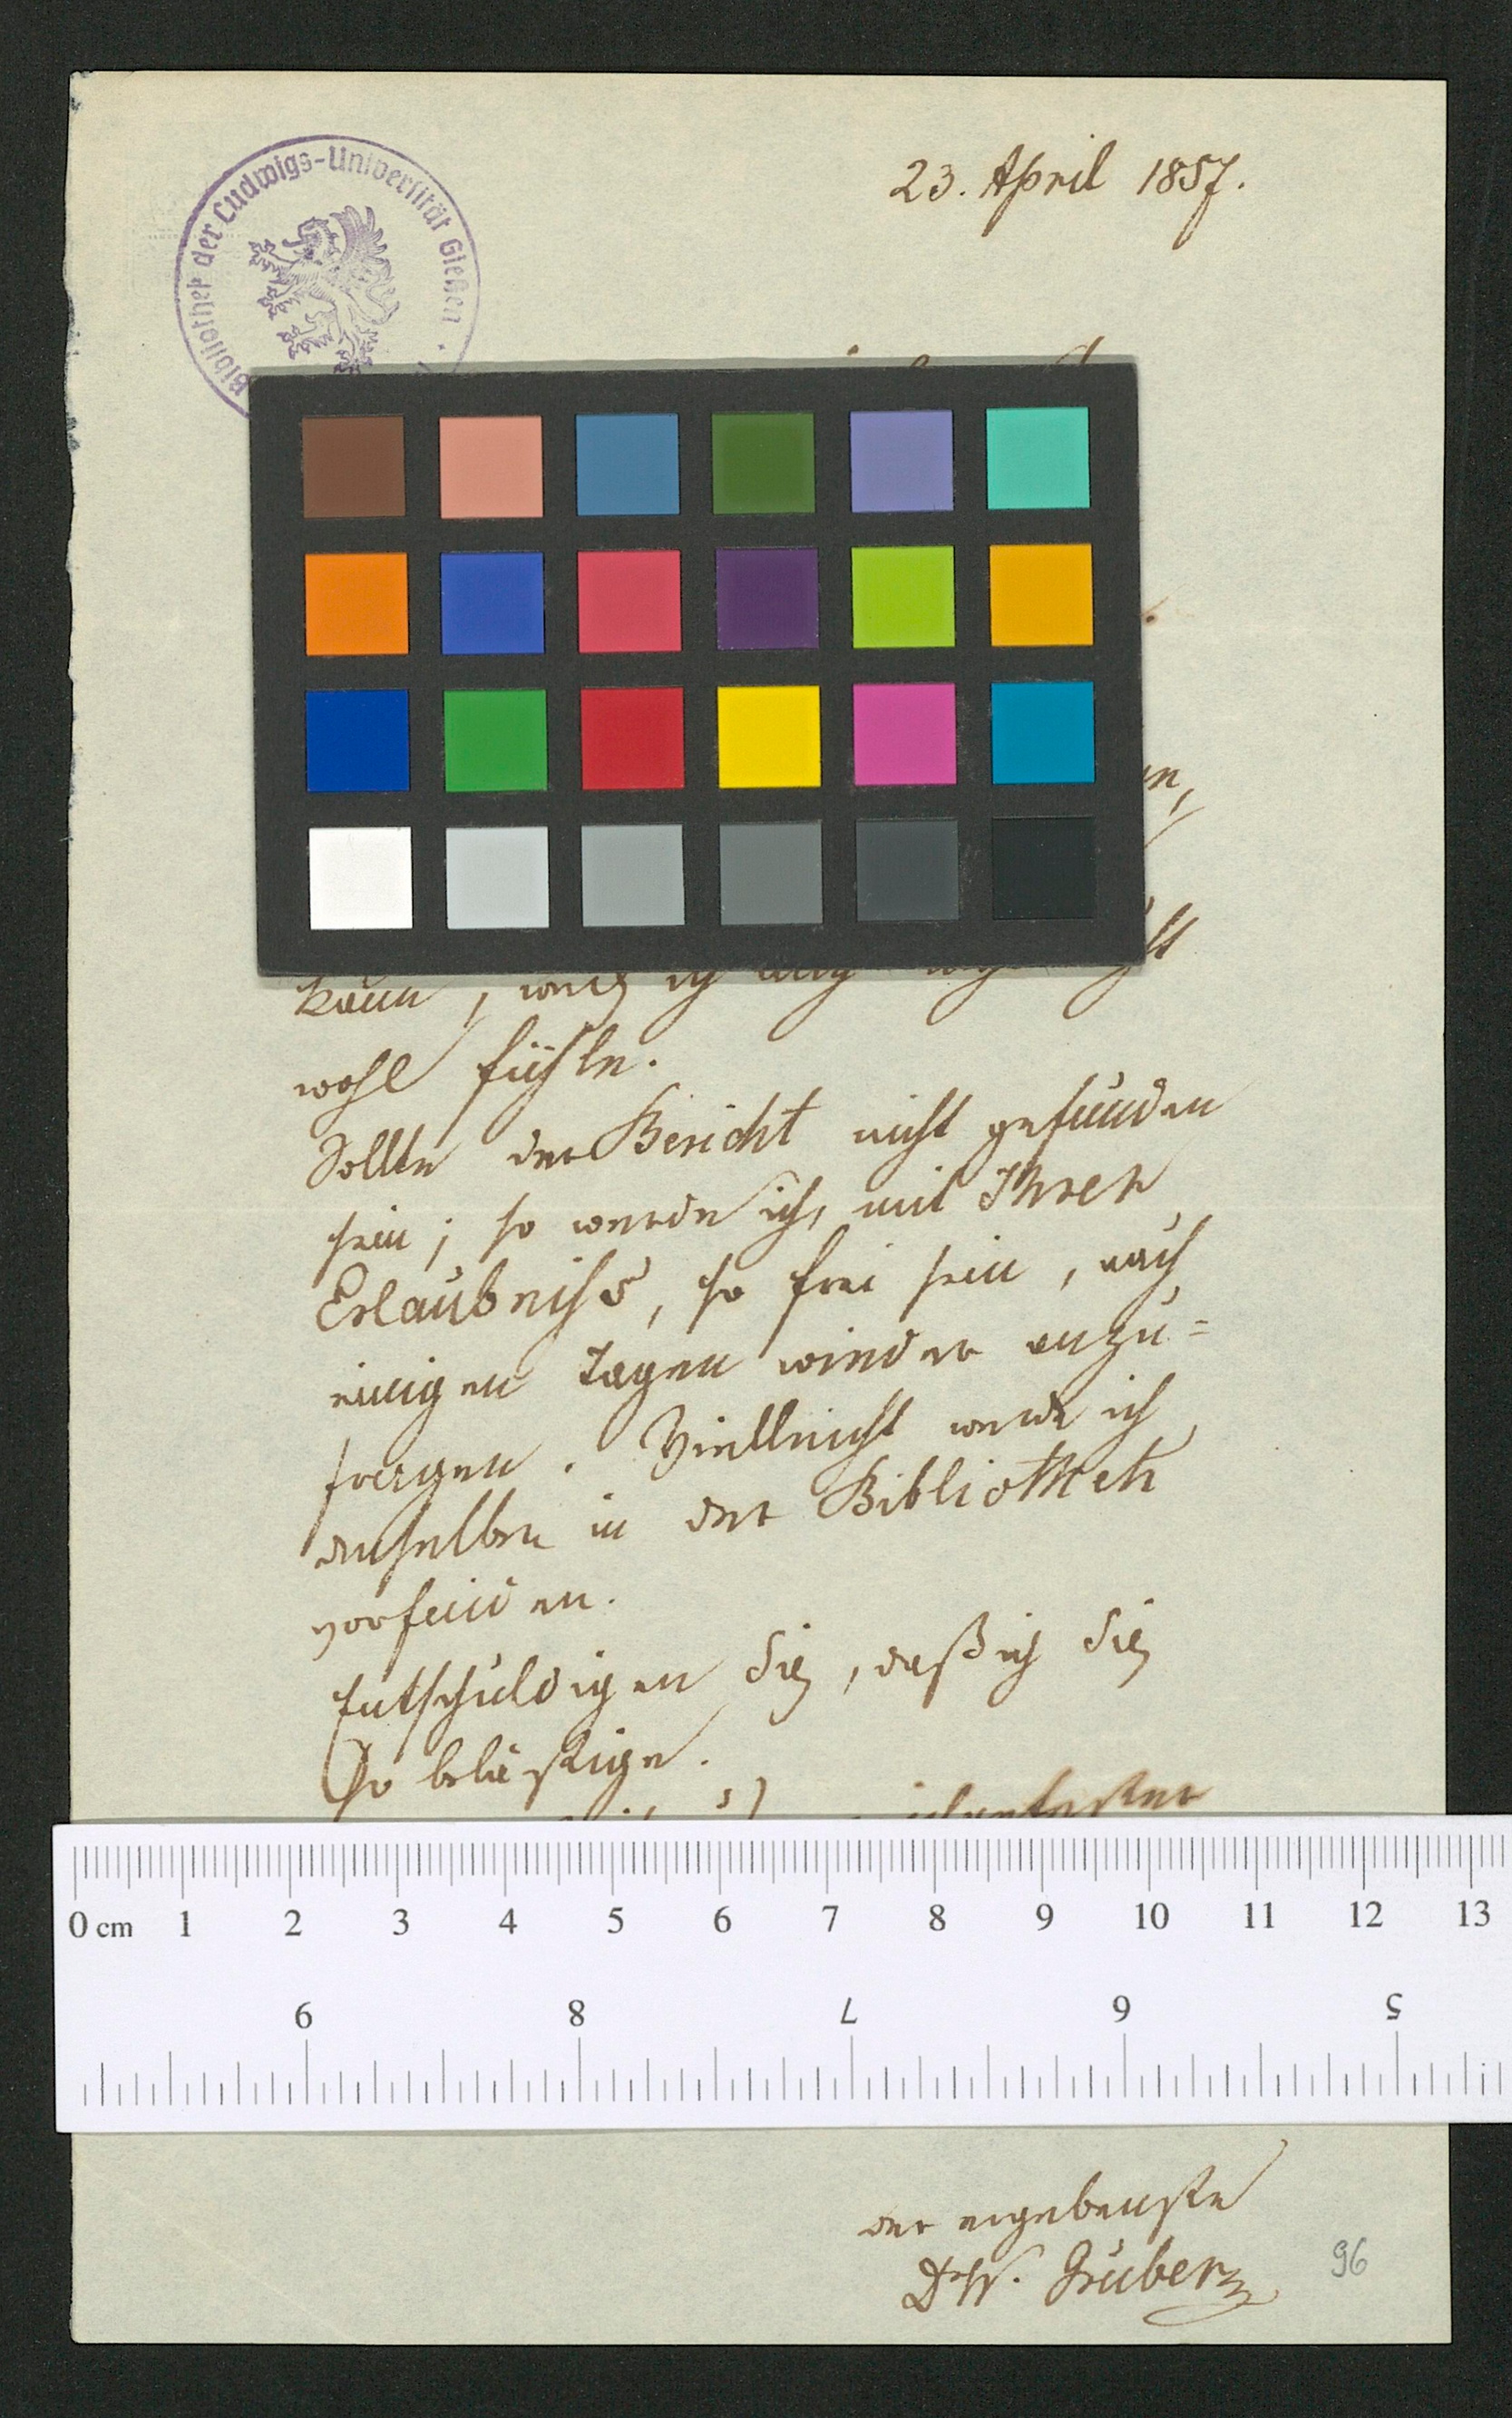 23. April 1857.
Bibliothek der Ludwigs-Universität Gießen
kann, weil ich
wohl fühle.
Sollte der Bericht nicht gefunden
sein; so werde ich, mit Ihrer
Erlaubniss, so frei sein, nach
einigen Tagen wieder anzu=
fragen. Vielleicht werde ich
denselben in der Bibliothek
vorfinden.
Entschuldigen Sie, daß ich Sie
so belästige.
0 cm 1 2 3 4 5 6 7 8 9 10 11 12 13
9 8 7 6 5
der ergebenste
Dr W. Gruber
96